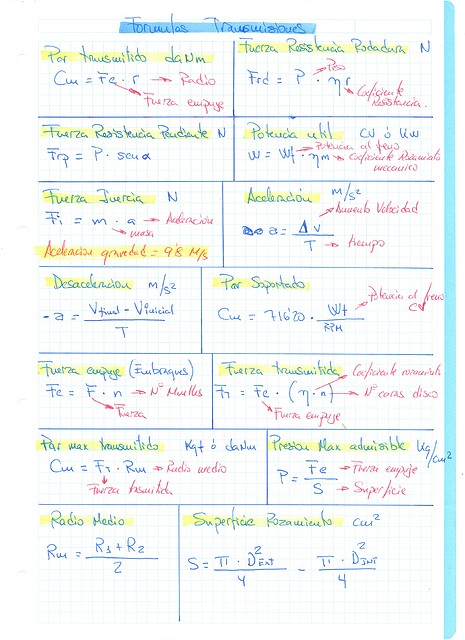 Formulas Transmisiones
Par transmitido daNm
Cm = Fe · r → Radio
Fuerza empuje
Fuerza Resistencia Rodadura N
Frd = P · ηr
Peso
Coeficiente Resistencia.
Fuerza Resistencia Pendiente N
Frp = P · senα
Potencia util CV ó Kw
W = Wf · ηm → Coeficiente Rozamiento mecanico
Potencia al freno
Fuerza Inercia N
Fi = m · a → Aceleración
masa
Aceleracion gravedad = 9'8 M/s
Aceleración m/s²
a = Δv / T → tiempo
Aumento Velocidad
Desaceleracion m/s²
-a = Vfinal - Vinicial / T
Par Soportado
Cm = 716'20 · Wf / RPM
Potencia al freno CV
Fuerza empuje (Embragues)
Fe = F · n → Nº Muelles
Fuerza
Fuerza transmitida
F1 = Fe · (η · n) → Nº caras disco
Coeficiente rozamiento
Fuerza empuje
Par max transmitido Kgf ó daNm
Cm = F1 · Rm → Radio medio
Fuerza trasmitida
Presion Max admisible Kg/cm²
P = Fe / S
Fuerza empuje
Superficie
Radio Medio
Rm = R1 + R2 / 2
Superficie Rozamiento cm²
S = π · D²EXT / 4 - π · D²INT / 4